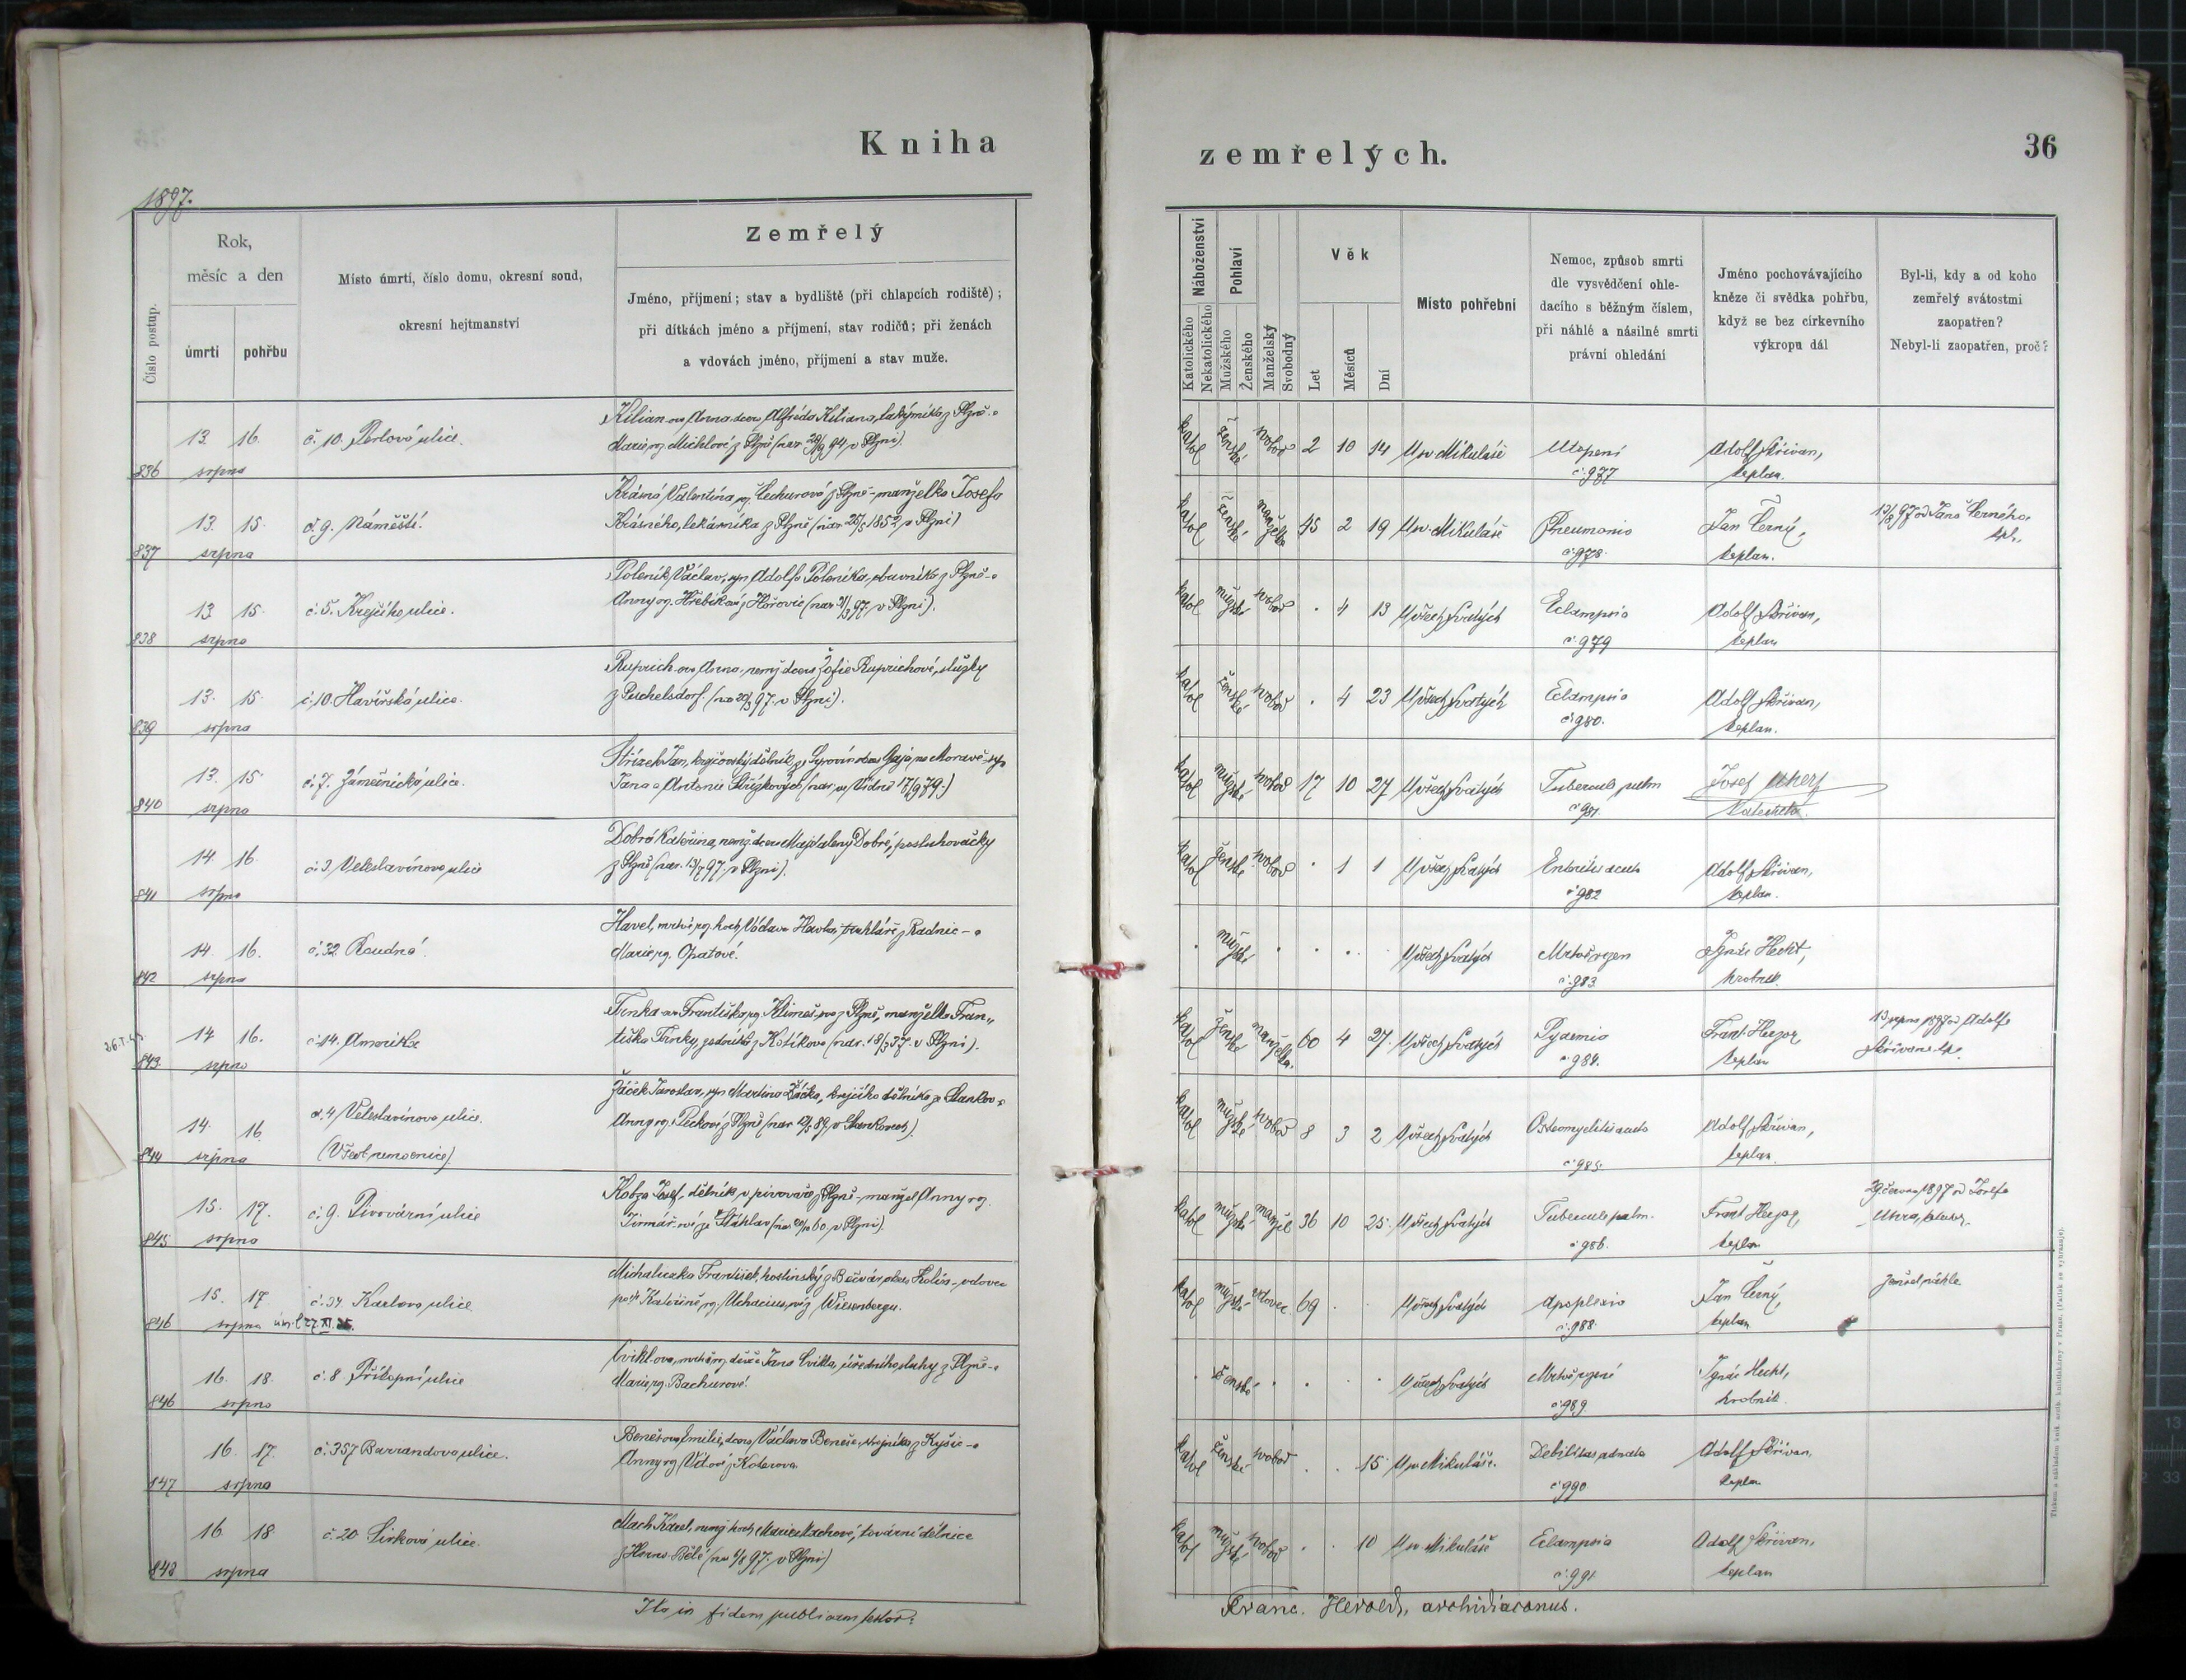 Kniha
zemřelých.
36
1897.
Číslo postup.
Rok,
měsíc a den
úmrtí
pohřbu
Místo úmrtí, číslo domu, okresní soud,
okresní hejtmanství
Zemřelý
Jméno, příjmení; stav a bydliště (při chlapcích rodiště);
při dítkách jméno a příjmení, stav rodičů; při ženách
a vdovách jméno, příjmení a stav muže.
Náboženství
Katolického
Nekatolického
Pohlaví
Mužského
Ženského
Manželský
Svobodný
Věk
Let
Měsíců
Dní
Místo pohřební
Nemoc, způsob smrti
dle vysvědčení ohle-
dacího s běžným číslem,
při náhlé a násilné smrti
právní ohledání
Jméno pochovávajícího
kněze či svědka pohřbu,
když se bez církevního
výkropu dál
Byl-li, kdy a od koho
zemřelý svátostmi
zaopatřen?
Nebyl-li zaopatřen, proč?
836 13. 16. srpna č. 10. Perlová ulice.
Kilian-ova Anna, dcera Alfréda Kiliana, z Plzně a
Marie, roj. Michlové z Plzně (nar. 28/9 94 v Plzni).
katol ženské svobod 2 10 14 U sv. Mikuláše Utopení č. 977 Adolf Skřivan, kaplan.
837 13. 15. srpna č. 9. Náměstí.
Krásná Valentina, roj. Čechurová z Plzně - manželka Josefa
Krásného, lékárníka z Plzně (nar. 25/5 1852 v Plzni)
katol ženské manželka 45 2 19 U sv. Mikuláše Pneumonia č. 978. Jan Černý, kaplan. 13/8 97 od Jana Černého, kpl.
838 13. 15. srpna č. 5. Krejčího ulice.
Poleník Václav, syn Adolfa Poleníka, obuvníka z Plzně a
Anny roj. Hřebíkové z Hořovic (nar. 31/3 97 v Plzni).
katol mužské svobod . 4 13 U všech Svatých Eclampsia č. 979 Adolf Skřivan, kaplan
839 13. 15. srpna č. 10. Havířská ulice.
Ruprich-ova Anna, nemž. dcera Žofie Ruprichové, služky
z Puschelsdorf. (nar. 20/3 97. v Plzni).
katol ženské svobod . 4 23 U všech Svatých Eclampsia č. 980. Adolf Skřivan, kaplan.
840 13. 15. srpna č. 7. Zámečnická ulice.
Střízek Jan, krejčovský dělník ze Syrovín okres Gaja na Moravě, syn
Jana a Antonie Střízkových (nar. ve Vídni 17/9 79.)
katol mužské svobod 17 10 27 U všech Svatých Tubercul. pulm č. 981. Josef Uherz Katecheta
841 14. 16. srpna č. 3 Veleslavínova ulice
Dobrá Kateřina, nemž. dcera Magdaleny Dobré, posluhovačky
z Plzně (nar. 13/7 97. v Plzni).
katol ženské svobod . 1 1 U všech Svatých Enteritis acuta č. 982 Adolf Skřivan, kaplan.
842 14. 16. srpna č. 32 Roudná.
Havel, mrtvě roj. hoch Václava Havla, truhláře z Radnic a
Marie, roj. Opatové.
mužské U všech Svatých Mrtvě rozen č. 983. Ignác Hecht, hrobník.
843. 14 16. srpna č. 14. Amerika
Trnka-ova Františka roj. Klimeš-ova z Plzně, manželka Fran„
tiška Trnky, z Kotíkova (nar. 18/3 37. v Plzni).
katol ženské manželka. 60 4 27. U všech Svatých Pyaemia č. 984. Frant. Herzog, kaplan 13 srpna 1897 od Adolfa Skřivana kpl.
844 14. 16 srpna č. 4 Veleslavínova ulice. (Všeob. nemocnice).
Žáček Jaroslav, syn Martina Žáčka, krejčího dělníka ze Stankov a
Anny roj. Peckové z Plzně (nar. 12/5 89, v Stankovech).
katol mužské svobod 8 3 2 U všech Svatých Osteomyelitis acuta č. 985. Adolf Skřivan, kaplan.
845 15. 17. srpna č. 9. Pivovární ulice
Kobza Josef, dělník v pivovaře z Plzně - manžel Anny roj.
ze Šťáhlav v Plzni).
katol mužské manžel 36 10 25. U všech Svatých Tubercul. pulm. č. 986. Frant. Herzog, kaplan 29. června 1897 od Josefa Uhra, katechety.
846 15. 17. srpna č. 34. Karlova ulice
Michaluzka František, hostinský z Bečvár okres Kolín - vdovec
po † Kateřině roj. Uchacius-ové z Wiesenbergu.
katol mužské vdovec 69 U všech Svatých Apoplexia č. 988. Jan Černý, kaplan zemřel náhle
846 16. 18. srpna č. 8 Příkopní ulice
Cviklova, mrtvě roj. děvče Jana Cvikla, úředního sluhy z Plzně a
Marie, roj. Bachurové.
ženské U všech Svatých Mrtvě rozené č. 989. Ignác Hecht, hrobník.
847 16. 17. srpna č. 357 Barrandova ulice.
Benešova Emilie, dcera Václava Beneše, strojníka z Kyšic a
Anny roj. Vítové z Koterova
katol ženské svobod . . 15. U sv. Mikuláše. Debilitas adnata č. 990 Adolf Skřivan, kaplan
848 16. 18 srpna č. 20 Sirková ulice.
Mach Karel, nemž. hoch Marie Machové, tovární dělnice
z Horno-Bělé (nar. 6/8 97. v Plzni)
katol mužské svobod . . 10 U sv. Mikuláše Eclampsia č. 991. Adolf Skřivan, kaplan
Ita in fidem publicam testor:
Franc. Herold, archidiaconus.